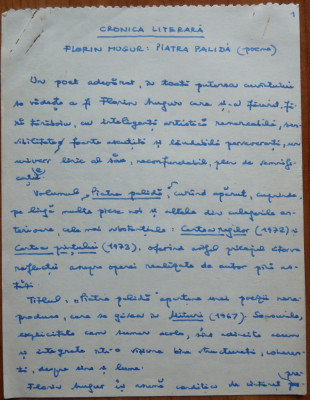 1
CRONICA LITERARĂ
FLORIN MUGUR: PIATRA PALIDĂ (poeme)
Un poet adevărat, în toată puterea cuvîntului
se vădește a fi Florin Mugur care și-a făurit, fă-
ră cu inteligență artistică remarcabilă, sen-
sibilitate foarte ascuțită și lăudabilă perseverență, un
univers liric al său, neconfundabil, plin de semnifi-
cații.
Volumul „Piatra palidă”, curînd apărut, cuprinde,
pe lîngă multe piese noi și altele din culegerile an-
terioare, cele mai substanțiale: Cartea regilor (1972) și
Cartea prințului (1973). oferind astfel prilejul
reflecții asupra operei realizate de autor pînă as-
tăzi.
Titlul, „Piatra palidă” aparține unei poezii nere-
produse, care se găsea în Mituri (1967). Sensurile,
explicitate cam sumar acolo, sînt adîncite acum
și integrate într-o viziune bine structurată, coeren-
tă, despre sine și lume.
Florin Mugur își asumă condiția de